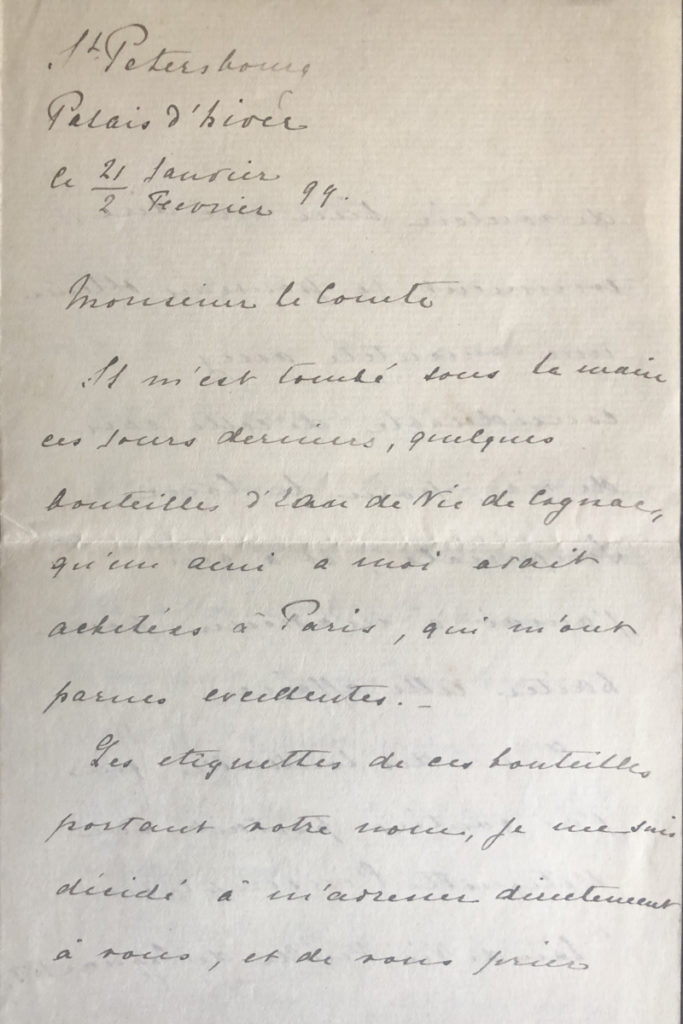 St Petersbourg
Palais d'hiver
ce 21/2 Janvier/Fevrier 99.
Monsieur le Comte
Il m'est tombé sous la main
ces jours derniers, quelques
bouteilles d'Eau de Vie de Cognac,
qu'un ami a moi avait
achetées à Paris, qui m'ont
parues excellentes. _
Les etiquettes de ces bouteilles
portant votre nom, je me suis
décidé à m'adresser directement
à vous, et de vous prier